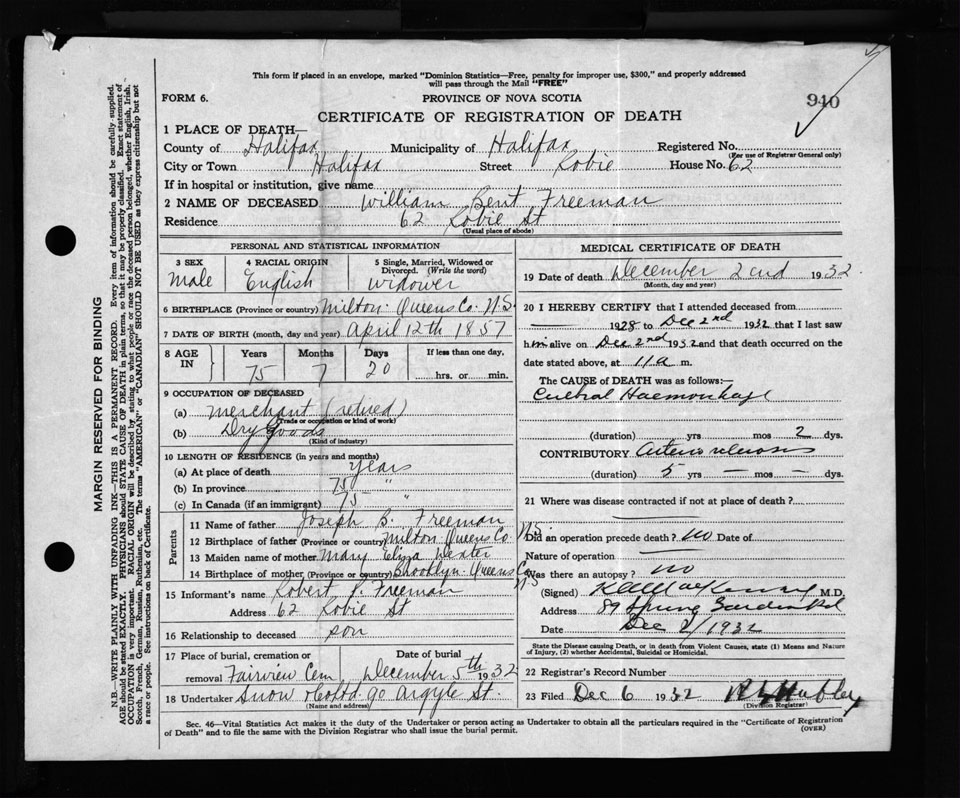 This form if placed in an envelope, marked "Dominion Statistics—Free, penalty for improper use, $300," and properly addressed
will pass through the Mail "FREE"
FORM 6.
PROVINCE OF NOVA SCOTIA
940
CERTIFICATE OF REGISTRATION OF DEATH
1 PLACE OF DEATH—
County of Halifax Municipality of Halifax Registered No.
(For use of Registrar General only)
City or Town Halifax Street Robie House No. 62
If in hospital or institution, give name
2 NAME OF DECEASED William Bent Freeman
Residence 62 Robie St
(Usual place of abode)
PERSONAL AND STATISTICAL INFORMATION
3 SEX 4 RACIAL ORIGIN 5 Single, Married, Widowed or
Divorced. (Write the word)
Male English widower
6 BIRTHPLACE (Province or country) Milton Queens Co. N.S.
7 DATE OF BIRTH (month, day and year) April 12th 1857
8 AGE IN Years Months Days If less than one day.
75 7 20 hrs. or min.
9 OCCUPATION OF DECEASED
(a) Merchant (retired)
(Trade or occupation or kind of work)
(b) Dry Goods
(Kind of industry)
10 LENGTH OF RESIDENCE (in years and months)
(a) At place of death years
(b) In province 75 "
(c) In Canada (if an immigrant) 75 "
Parents
11 Name of father Joseph B. Freeman
12 Birthplace of father (Province or country) Milton Queens Co. N.S.
13 Maiden name of mother Mary Eliza Dexter
14 Birthplace of mother (Province or country) Brooklyn Queens Co. N.S
15 Informant's name Robert P. Freeman
Address 62 Robie St
16 Relationship to deceased son
17 Place of burial, cremation or Date of burial
removal Fairview Cem December 5th 1932
18 Undertaker Snow & Co Ltd 90 Argyle St.
(Name and address)
MEDICAL CERTIFICATE OF DEATH
19 Date of death December 2nd 1932
(Month, day and year)
20 I HEREBY CERTIFY that I attended deceased from
1928 to Dec 2nd 1932 that I last saw
him alive on Dec 2nd 1932 and that death occurred on the
date stated above, at 11 a m.
The CAUSE OF DEATH was as follows:—
Cerebral Haemorrhage
(duration) yrs mos 2 dys.
CONTRIBUTORY Arterio sclerosis
(duration) 5 yrs — mos — dys.
21 Where was disease contracted if not at place of death?
Did an operation precede death? no Date of
Nature of operation
Was there an autopsy? no
(Signed) M.D.
Address 89 Spring Garden Rd
Date Dec 2/1932
State the Disease causing Death, or in death from Violent Causes, state (1) Means and Nature
of Injury, (2) whether Accidental, Suicidal or Homicidal.
22 Registrar's Record Number
23 Filed Dec 6 1932
(Division Registrar)
Sec. 46—Vital Statistics Act makes it the duty of the Undertaker or person acting as Undertaker to obtain all the particulars required in the "Certificate of Registration
of Death" and to file the same with the Division Registrar who shall issue the burial permit.
(OVER)
MARGIN RESERVED FOR BINDING
N.B.—WRITE PLAINLY WITH UNFADING INK—THIS IS A PERMANENT RECORD. Every item of information should be carefully supplied.
AGE should be stated EXACTLY. PHYSICIANS should STATE CAUSE OF DEATH in plain terms, so that it may be properly classified. Exact statement of
OCCUPATION is very important. RACIAL ORIGIN will be described by stating to what people or race the deceased person belonged, whether English, Irish,
Scotch, French, German, Russian, Ruthenian, etc. The terms "AMERICAN" or "CANADIAN" SHOULD NOT BE USED as they express citizenship but not
a race or people. See instructions on back of Certificate.